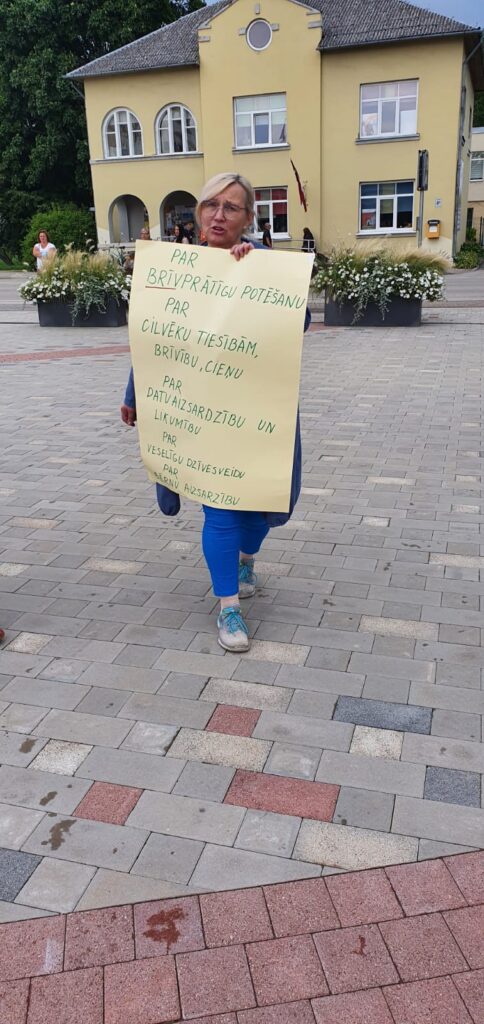 PAR
BRĪVPRĀTĪGU POTĒŠANU
PAR
CILVĒKU TIESĪBĀM,
BRĪVĪBU, CIEŅU
PAR
DATU AIZSARDZĪBU UN
LIKUMĪBU
PAR
VESELĪGU DZĪVESVEIDU
PAR
BĒRNU AIZSARZĪBU